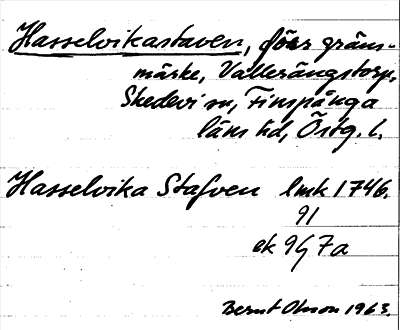 Hasselvikastaven, förr gräns-
märke, Vallerängstorp,
Skedevi sn, Finspånga
läns hd, Östg. l.
Hasselvika Stafven lmk 1746.
91
ek 9G7a
Bernt Olsson 1963.